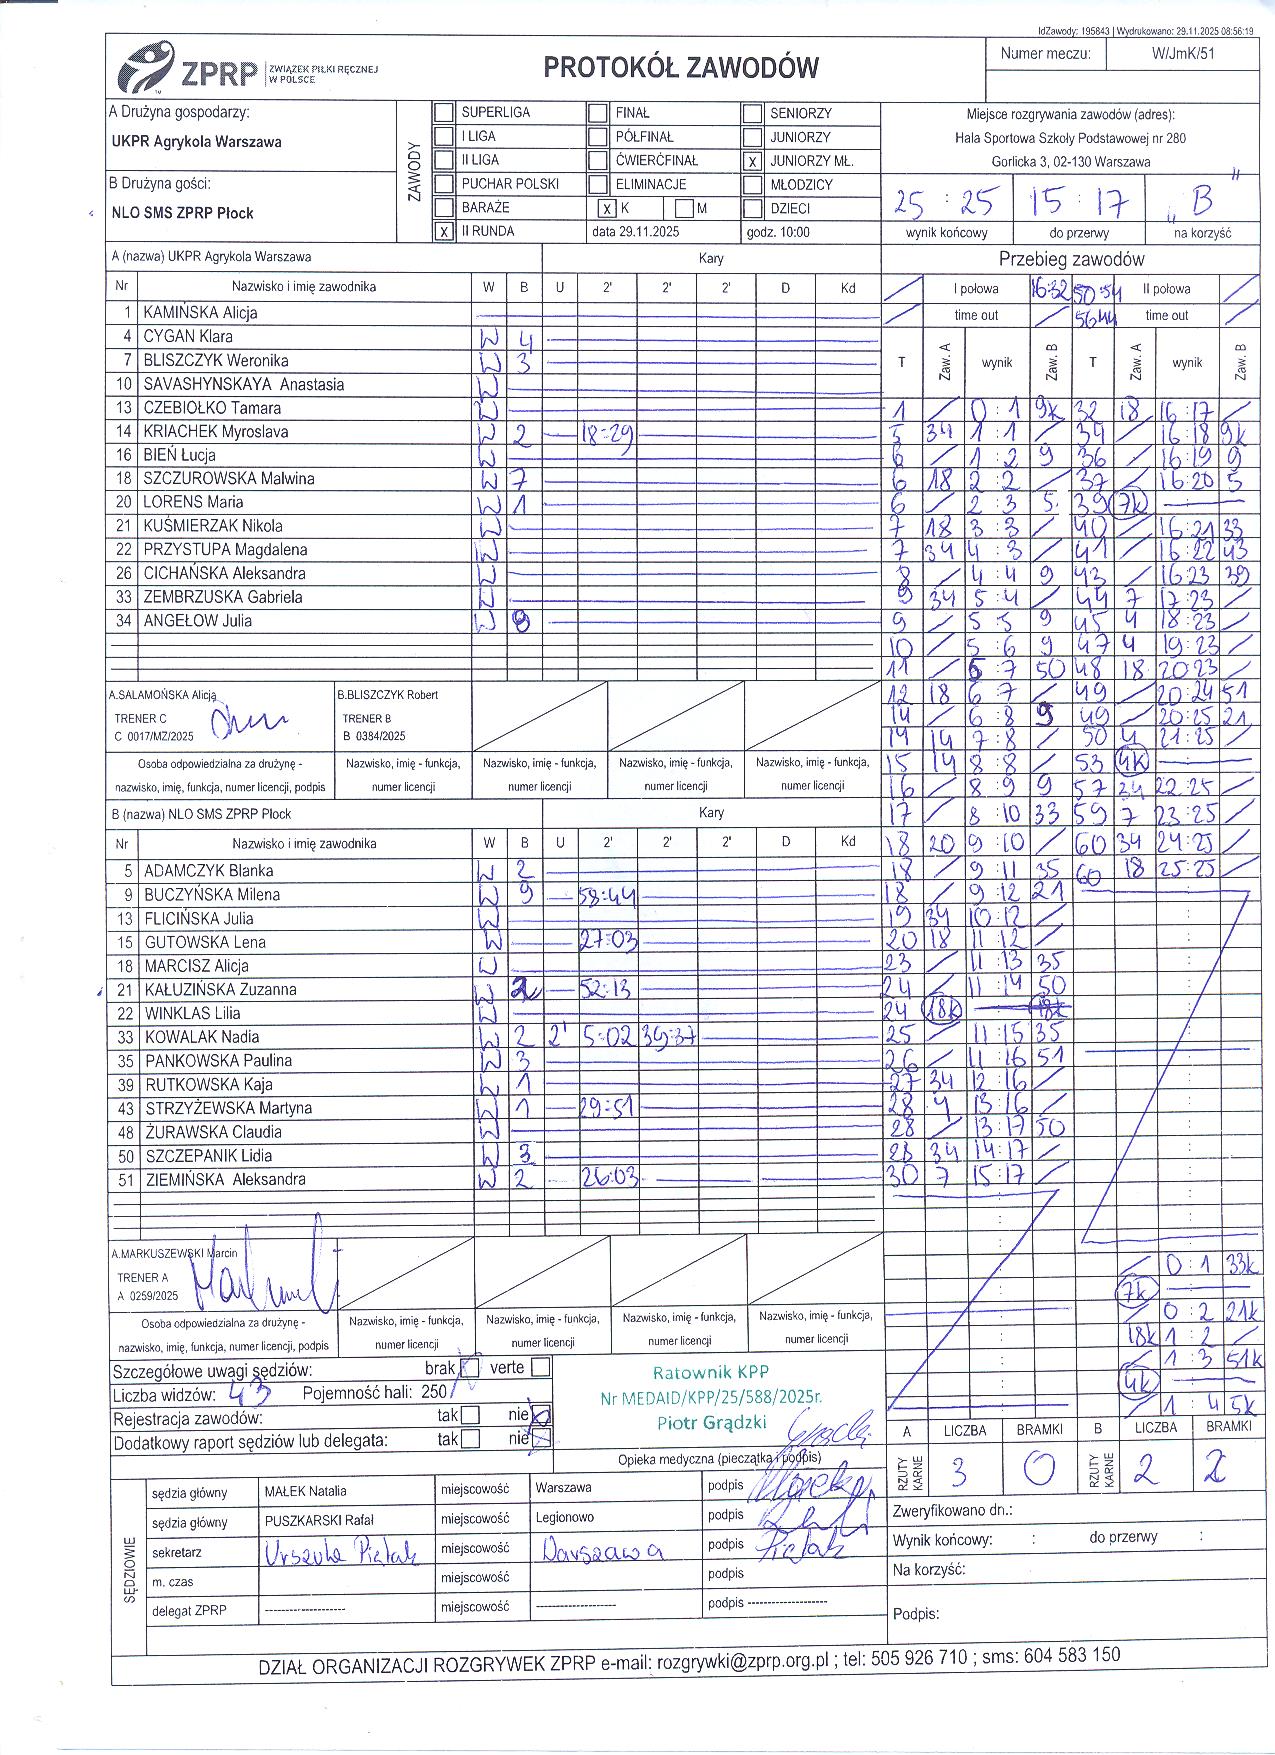 IdZawody: 195843 | Wydrukowano: 29.11.2025 08:56:19
ZPRP ZWIĄZEK PIŁKI RĘCZNEJ W POLSCE
PROTOKÓŁ ZAWODÓW
Numer meczu: W/JmK/51
A Drużyna gospodarzy:
UKPR Agrykola Warszawa
B Drużyna gości:
NLO SMS ZPRP Płock
ZAWODY
SUPERLIGA FINAŁ SENIORZY
I LIGA PÓŁFINAŁ JUNIORZY
II LIGA ĆWIERĆFINAŁ x JUNIORZY MŁ.
PUCHAR POLSKI ELIMINACJE MŁODZICY
BARAŻE x K M DZIECI
x II RUNDA data 29.11.2025 godz. 10:00
Miejsce rozgrywania zawodów (adres):
Hala Sportowa Szkoły Podstawowej nr 280
Gorlicka 3, 02-130 Warszawa
25 : 25 15 : 17 „B"
wynik końcowy do przerwy na korzyść
A (nazwa) UKPR Agrykola Warszawa Kary
Nr Nazwisko i imię zawodnika W B U 2' 2' 2' D Kd
1 KAMIŃSKA Alicja
4 CYGAN Klara W 4
7 BLISZCZYK Weronika W 3
10 SAVASHYNSKAYA Anastasia W
13 CZEBIOŁKO Tamara W
14 KRIACHEK Myroslava W 2 18-29
16 BIEŃ Łucja W
18 SZCZUROWSKA Malwina W 7
20 LORENS Maria W 1
21 KUŚMIERZAK Nikola W
22 PRZYSTUPA Magdalena W
26 CICHAŃSKA Aleksandra W
33 ZEMBRZUSKA Gabriela W
34 ANGEŁOW Julia W 8
A.SALAMOŃSKA Alicja
TRENER C
C 0017/MZ/2025
B.BLISZCZYK Robert
TRENER B
B 0384/2025
Osoba odpowiedzialna za drużynę - nazwisko, imię, funkcja, numer licencji, podpis
Nazwisko, imię - funkcja, numer licencji
Nazwisko, imię - funkcja, numer licencji
Nazwisko, imię - funkcja, numer licencji
Nazwisko, imię - funkcja, numer licencji
B (nazwa) NLO SMS ZPRP Płock Kary
Nr Nazwisko i imię zawodnika W B U 2' 2' 2' D Kd
5 ADAMCZYK Blanka W 2
9 BUCZYŃSKA Milena W 9 58:44
13 FLICIŃSKA Julia W
15 GUTOWSKA Lena W 27:03
18 MARCISZ Alicja W
21 KAŁUZIŃSKA Zuzanna W 2 52-13
22 WINKLAS Lilia W
33 KOWALAK Nadia W 2 2' 5-02 39:37
35 PANKOWSKA Paulina W 3
39 RUTKOWSKA Kaja W 1
43 STRZYŻEWSKA Martyna W 1 29:51
48 ŻURAWSKA Claudia W
50 SZCZEPANIK Lidia W 3
51 ZIEMIŃSKA Aleksandra W 2 26:03
A.MARKUSZEWSKI Marcin
TRENER A
A 0259/2025
Osoba odpowiedzialna za drużynę - nazwisko, imię, funkcja, numer licencji, podpis
Nazwisko, imię - funkcja, numer licencji
Nazwisko, imię - funkcja, numer licencji
Nazwisko, imię - funkcja, numer licencji
Nazwisko, imię - funkcja, numer licencji
Przebieg zawodów
I połowa 16:32 50:54 II połowa
time out 56:44 time out
T Zaw. A wynik Zaw. B T Zaw. A wynik Zaw. B
1 / 0:1 9k 32 18 16:17 /
5 34 1:1 / 34 / 16:18 9k
6 / 1:2 9 36 / 16:19 9
6 18 2:2 / 37 / 16:20 5
6 / 2:3 5 39 7k
7 18 3:3 / 40 / 16:21 33
7 34 4:3 / 41 / 16:22 43
8 / 4:4 9 43 / 16:23 39
9 34 5:4 / 44 7 17:23 /
9 / 5:5 9 45 4 18:23 /
10 / 5:6 9 47 4 19:23 /
11 / 6:7 50 48 18 20:23 /
12 18 6:7 / 49 / 20:24 51
14 / 6:8 9 49 / 20:25 21
14 14 7:8 / 50 4 21:25 /
15 14 8:8 / 53 4k
16 / 8:9 9 57 34 22:25 /
17 / 8:10 33 59 7 23:25 /
18 20 9:10 / 60 34 24:25 /
18 / 9:11 35 60 18 25:25 /
18 / 9:12 21
19 34 10:12 /
20 18 11:12 /
23 / 11:13 35
24 / 11:14 50
24 18k
25 11:15 35
26 / 11:16 51
27 34 12:16 /
28 4 13:16 /
28 / 13:17 50
28 34 14:17 /
30 7 15:17 /
/ 0:1 33k
7k
/ 0:2 21k
18k 1:2 /
/ 1:3 51k
4k
/ 1:4 5k
Szczegółowe uwagi sędziów: brak verte
Liczba widzów: 43 Pojemność hali: 250
Rejestracja zawodów: tak nie
Dodatkowy raport sędziów lub delegata: tak nie
Ratownik KPP
Nr MEDAID/KPP/25/588/2025r.
Piotr Grądzki
Opieka medyczna (pieczątka i podpis)
A LICZBA BRAMKI B LICZBA BRAMKI
RZUTY KARNE 3 0 RZUTY KARNE 2 2
SĘDZIOWIE
sędzia główny MAŁEK Natalia miejscowość Warszawa podpis
sędzia główny PUSZKARSKI Rafał miejscowość Legionowo podpis
sekretarz Urszula Pietak miejscowość Warszawa podpis Pietak
m. czas miejscowość podpis
delegat ZPRP -------------------- miejscowość -------------------- podpis --------------------
Zweryfikowano dn.:
Wynik końcowy: : do przerwy :
Na korzyść:
Podpis:
DZIAŁ ORGANIZACJI ROZGRYWEK ZPRP e-mail: rozgrywki@zprp.org.pl ; tel: 505 926 710 ; sms: 604 583 150